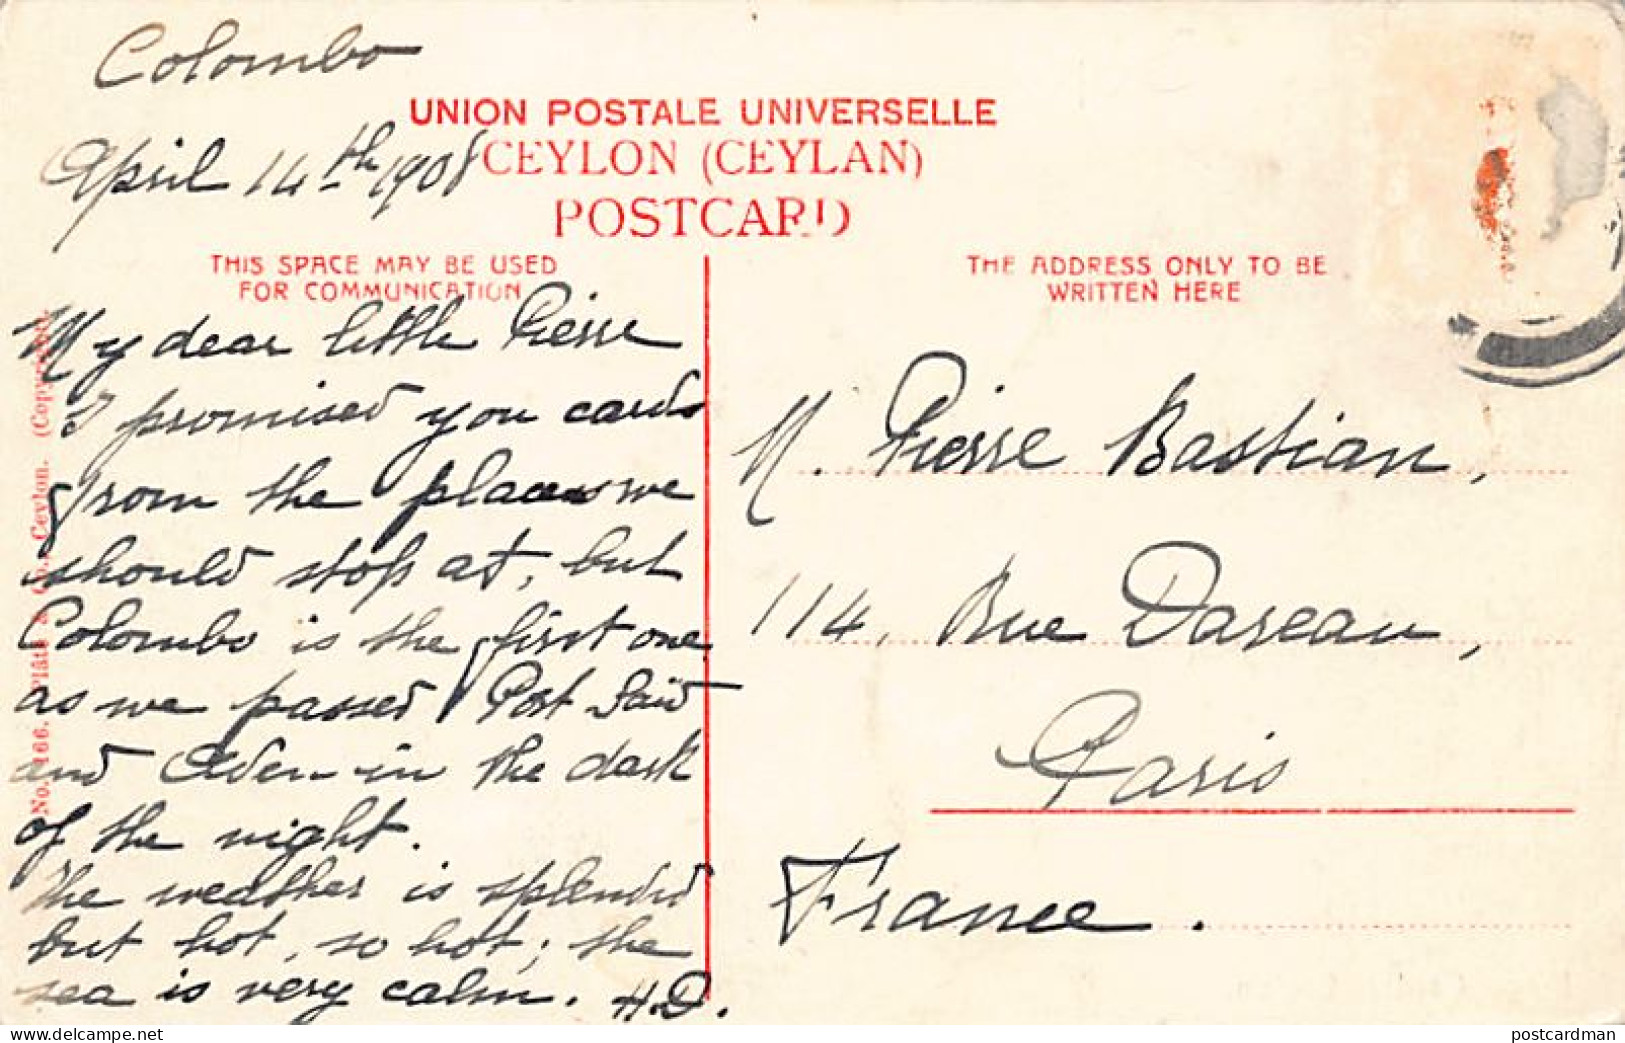 Colombo
April 14th 1908
UNION POSTALE UNIVERSELLE
CEYLON (CEYLAN)
POSTCARD
THIS SPACE MAY BE USED
FOR COMMUNICATION
My dear little Pierre
I promised you cards
from the places we
should stop at, but
Colombo is the first one
as we passed Port Saïd
and Aden in the dark
of the night.
The weather is splendid
but hot, so hot; the
sea is very calm. H.D.
THE ADDRESS ONLY TO BE
WRITTEN HERE
M. Pierre Bastian,
114, Rue Dareau,
Paris
France.
No. 166. Plâté & Co., Ceylon. (Copyright).
delcampe.net
postcardman